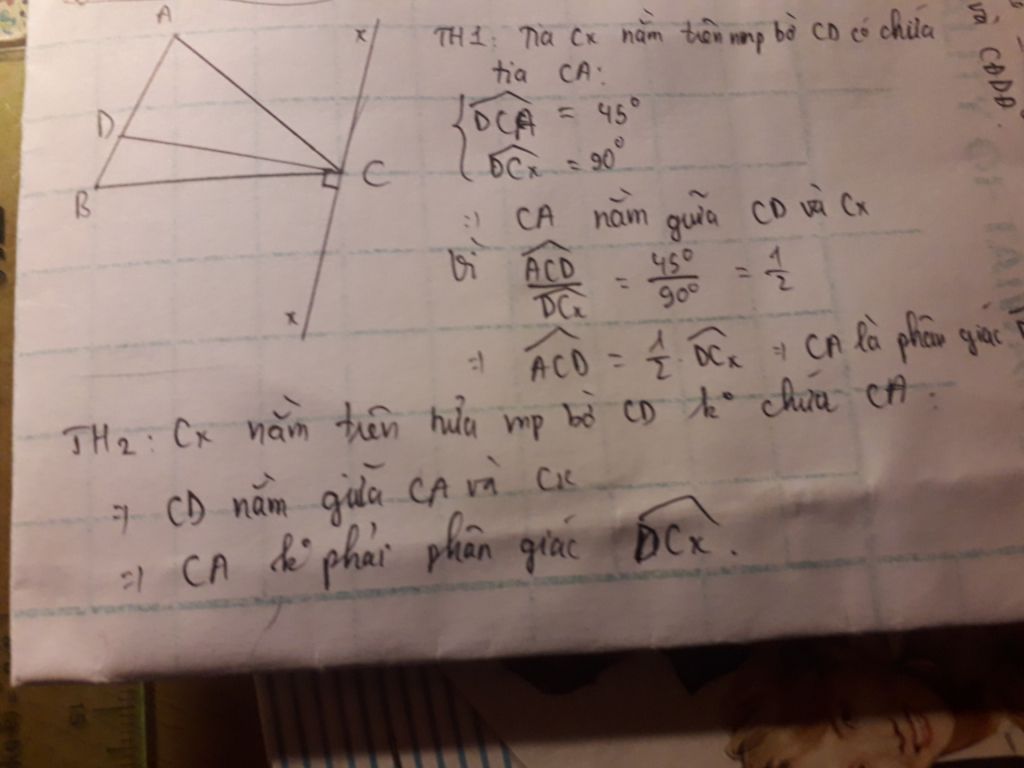 A
D
B
C
x
x
TH1: Tia Cx nằm trên nmp bờ CD có chứa
tia CA:
{ \widehat{DCA} = 45°
\widehat{DCx} = 90°
=> CA nằm giữa CD và Cx
Vì \widehat{ACD} / \widehat{DCx} = 45° / 90° = 1/2
=> \widehat{ACD} = 1/2 . \widehat{DCx} => CA là phân giác
TH2: Cx nằm trên nửa mp bờ CD k° chứa CA:
=> CD nằm giữa CA và Cx
=> CA k° phải phân giác \widehat{DCx}.
và, CDD